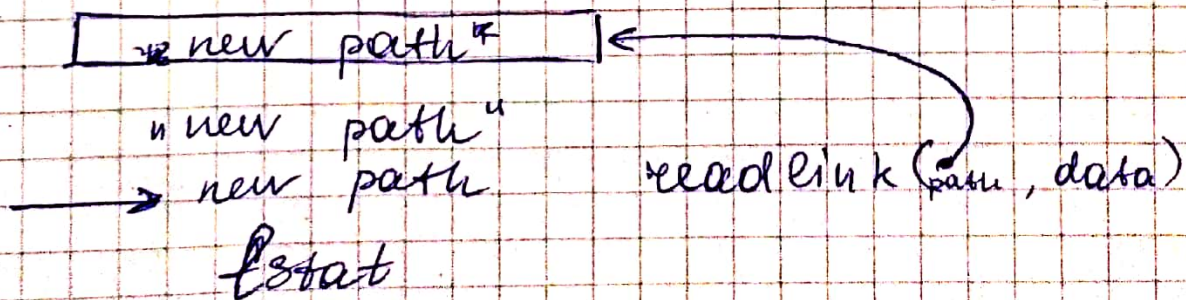 "new path"
"new path"
new path readlink(path, data)
lstat